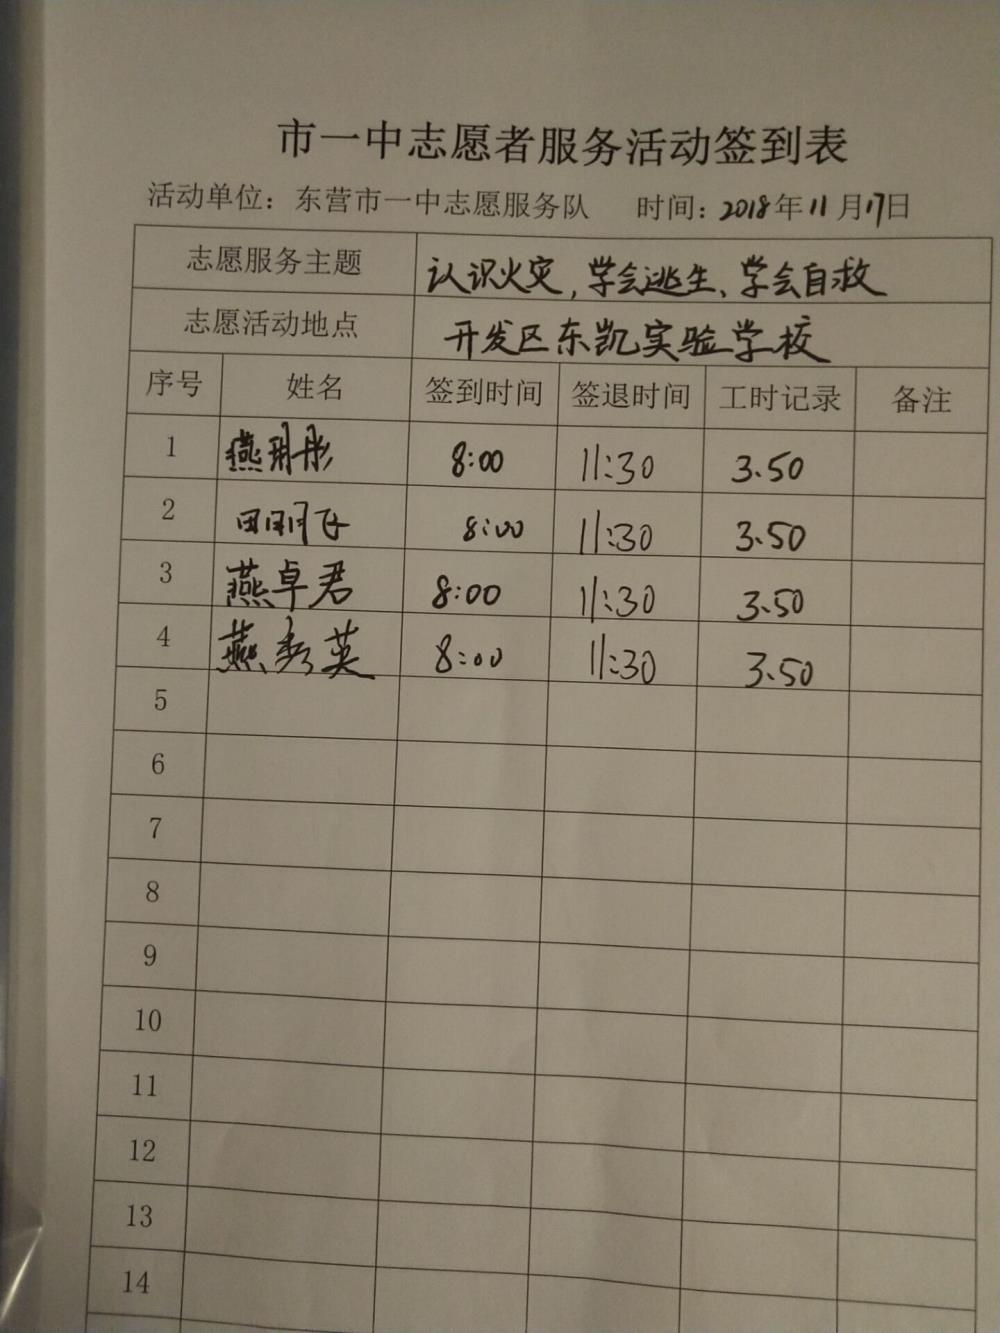 市一中志愿者服务活动签到表
活动单位：东营市一中志愿服务队 时间：2018年11月17日
志愿服务主题 认识火灾，学会逃生、学会自救
志愿活动地点 开发区东凯实验学校
序号 姓名 签到时间 签退时间 工时记录 备注
1 燕玥彤 8:00 11:30 3.50
2 田 飞 8:00 11:30 3.50
3 燕卓君 8:00 11:30 3.50
4 燕秀英 8:00 11:30 3.50
5
6
7
8
9
10
11
12
13
14